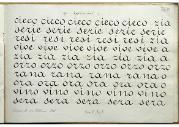 cieco cieco cieco cieco cieco zia
serie serie serie serie serie
resi resi resi resi resi zia
vive vive vive vive vive vive a
zia zia zia zia zia zia zia
orzo orzo orzo orzo orzo orzo
rana rana rana rana rana o
ora ora ora ora ora ora o
vino vino vino vino vino vino
sera sera sera sera sera sera